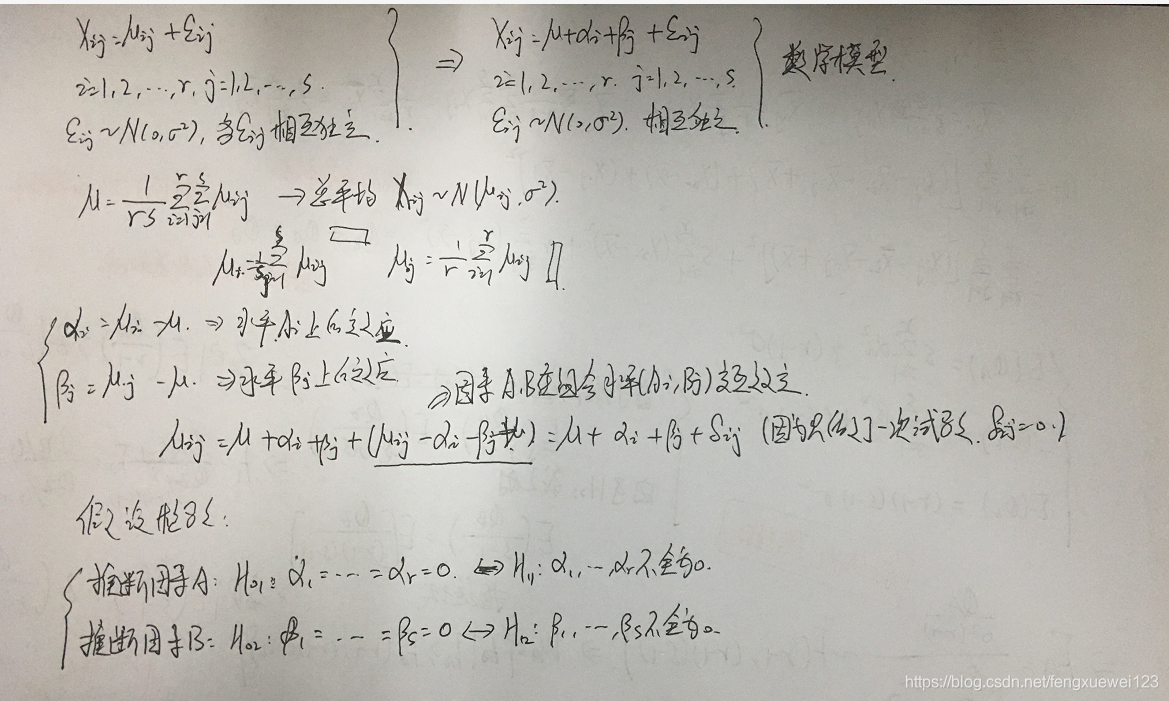 Xij=μij+εij ⇒ Xij=μ+αi+βj+εij
i=1,2,…,r, j=1,2,…,s. i=1,2,…,r. j=1,2,…,s. 数学模型.
εij~N(0,σ²), 各εij相互独立. εij~N(0,σ²). 相互独立.
μ=1/rs Σ(i=1→r) Σ(j=1→s) μij → 总平均 Xij~N(μij,σ²).
μi·=1/s Σ(j=1→s) μij μ·j=1/r Σ(i=1→r) μij
αi=μi·-μ. ⇒水平Ai上的效应.
βj=μ·j-μ. ⇒水平βj上的效应. ⇒因子A,B在组合水平(Ai,βj)交互效应.
μij=μ+αi+βj+(μij-αi-βj-μ)=μ+αi+βj+δij (因为只做了一次试验, δij=0.)
假设检验:
推断因子A: H01: α1=…=αr=0. ↔ H11: α1,…,αr不全为0.
推断因子B: H02: β1=…=βs=0 ↔ H12: β1,…,βs不全为0.
https://blog.csdn.net/fengxuewei123